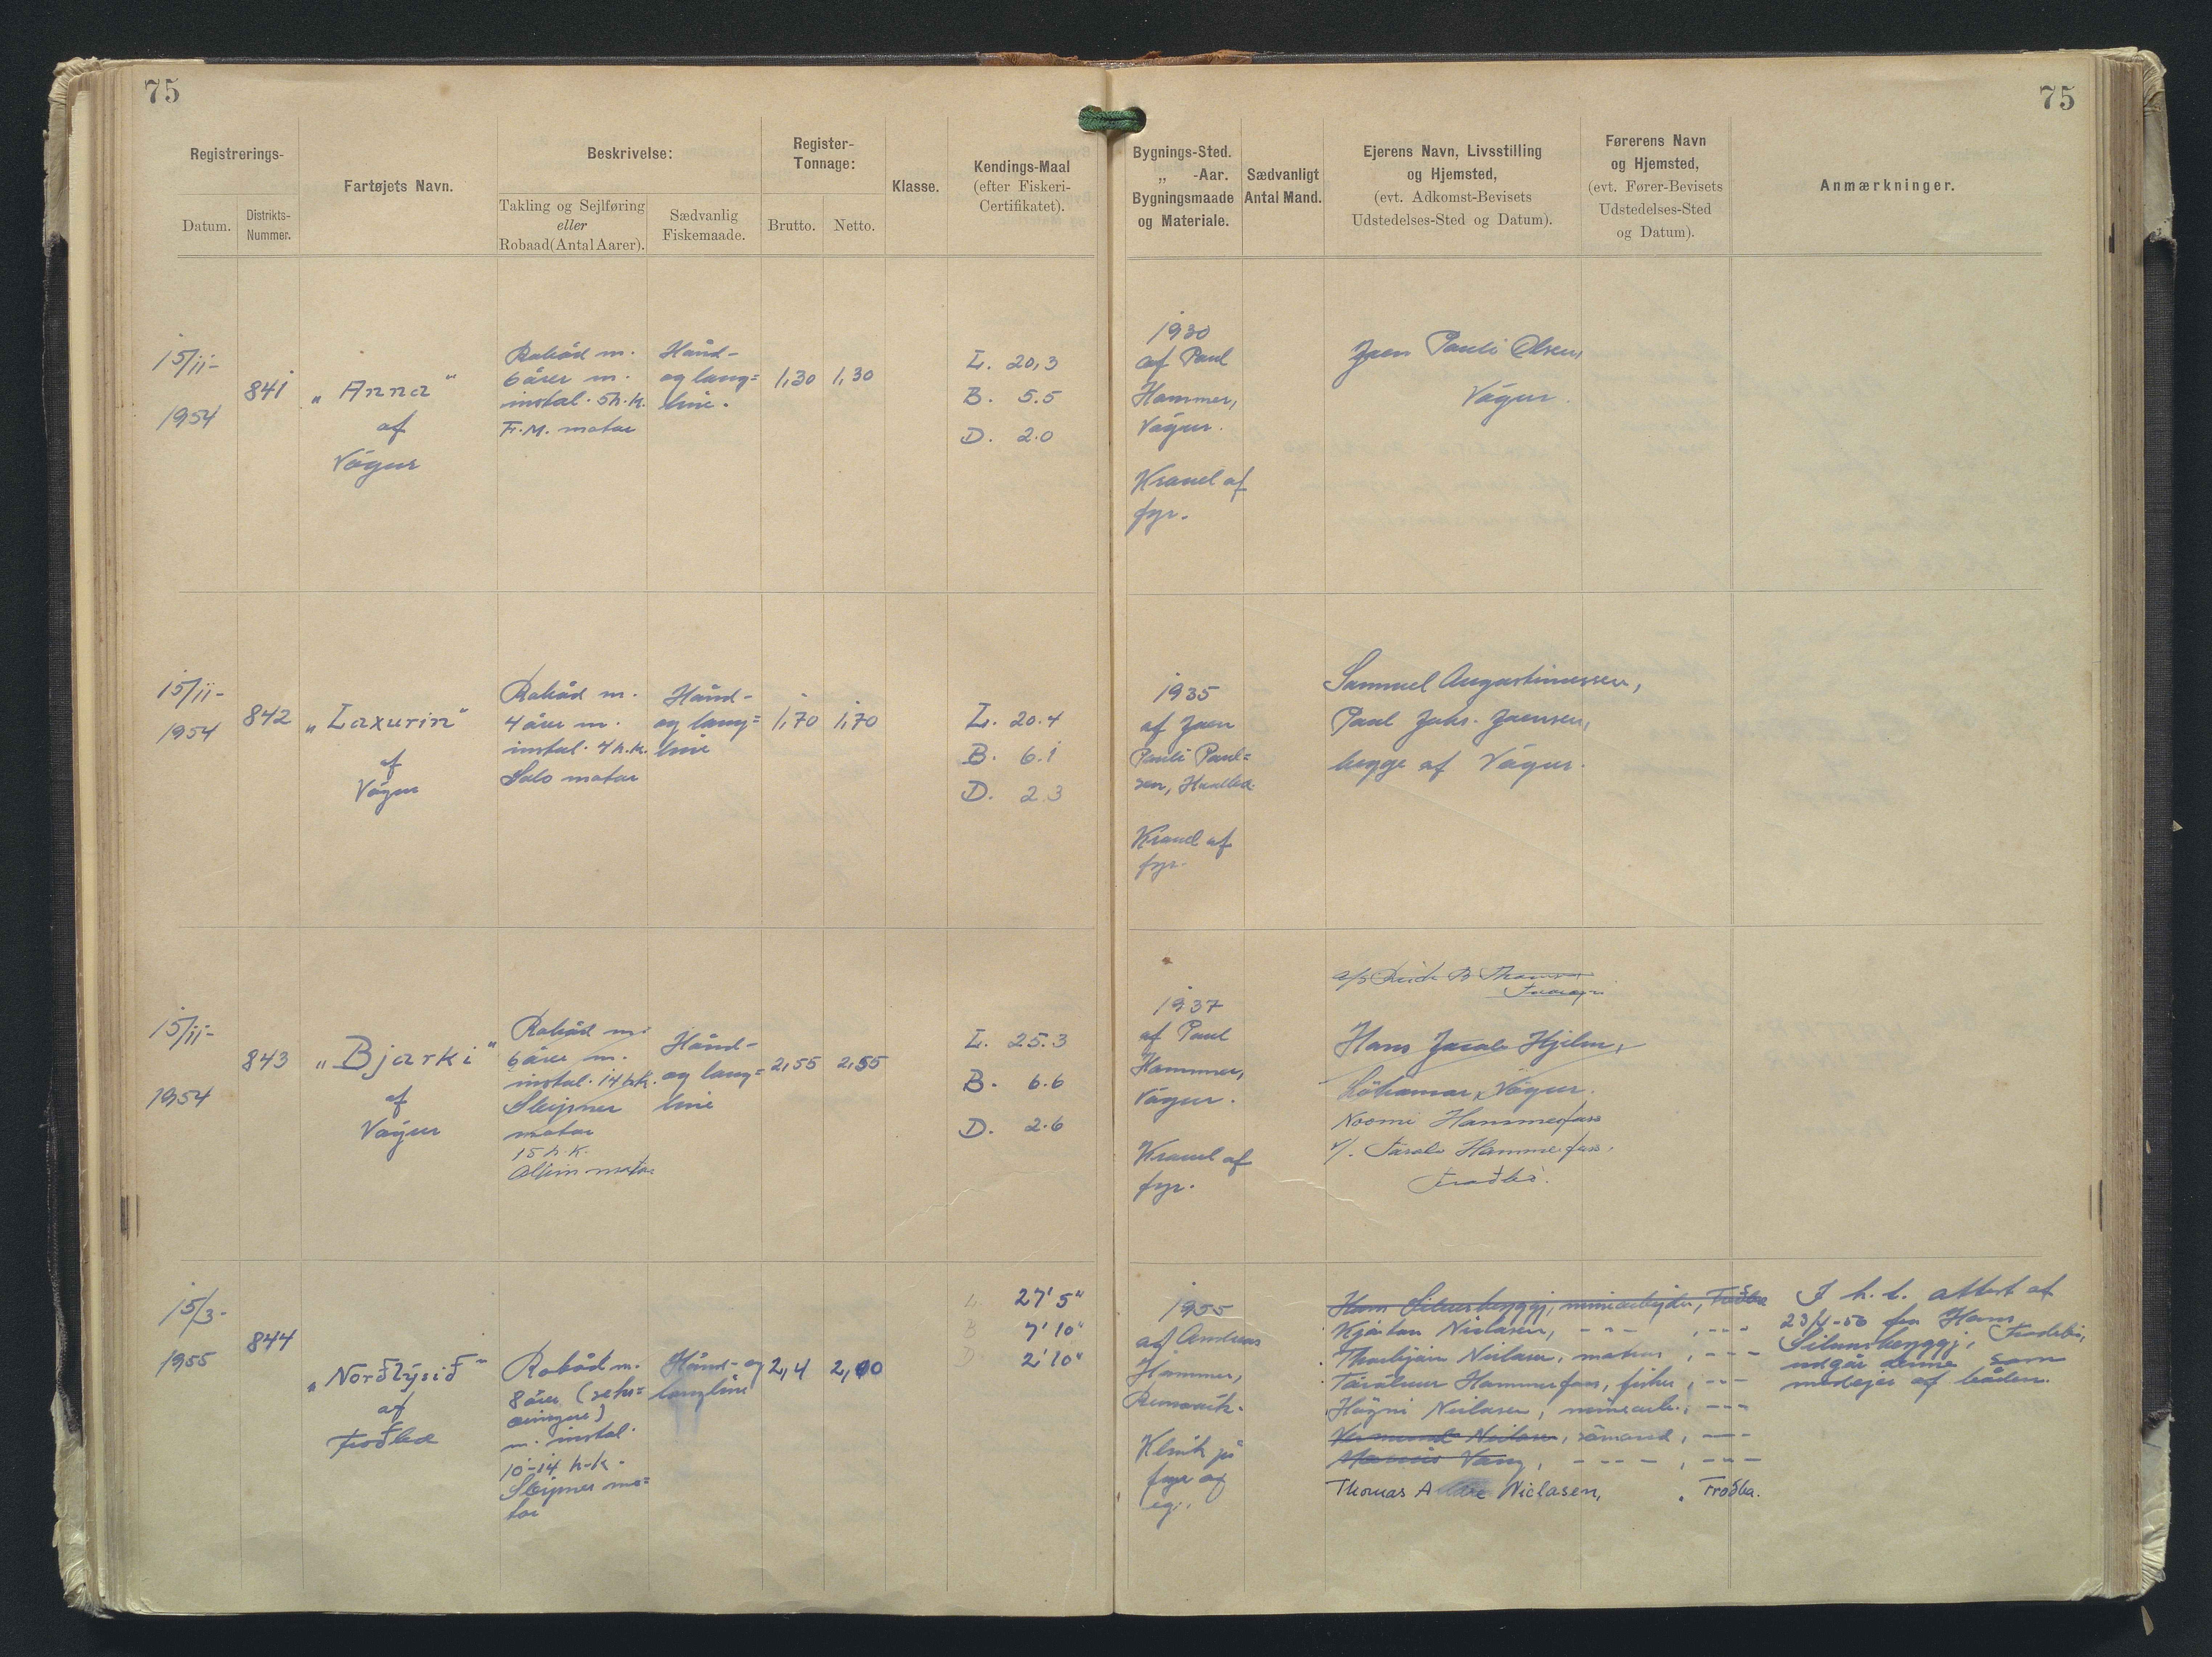 75
75
Registrerings-
Datum.
Distrikts-
Nummer.
Fartøjets Navn.
Beskrivelse:
Takling og Sejlføring
eller
Robaad (Antal Aarer).
Sædvanlig
Fiskemaade.
Register-
Tonnage:
Brutto.
Netto.
Klasse.
Kendings-Maal
(efter Fiskeri-
Certifikatet).
Bygnings-Sted.
„ -Aar.
Bygningsmaade
og Materiale.
Sædvanligt
Antal Mand.
Ejerens Navn, Livsstilling
og Hjemsted,
(evt. Adkomst-Bevisets
Udstedelses-Sted og Datum).
Førerens Navn
og Hjemsted,
(evt. Fører-Bevisets
Udstedelses-Sted
og Datum).
Anmærkninger.
15/11-
1954
841
„Anna"
af
Vágur
Robåd m.
6 årer m.
instal. 5 h.k.
F.M. motor
Hånd-
og lang=
line.
1,30
1,30
L. 20,3
B. 5.5
D. 2.0
1930
af Paul
Hammer,
Vágur.
Kravel af
fyr.
Joen Pauli Olsen,
Vágur.
15/11-
1954
842
„Laxurin"
af
Vágur
Robåd m.
4 årer m.
instal. 4 h.k.
Solo motor
Hånd-
og lang=
line
1,70
1,70
L. 20.4
B. 6.1
D. 2.3
1935
af Joen
Pauli Poul=
sen,
Kravel af
fyr.
Samuel Augustinussen,
Paul Johs. Joensen,
begge af Vágur.
15/11-
1954
843
„Bjarki"
af
Vágur
Robåd m.
6 årer m.
instal. 14 h.k.
Sleipner
motor
15 h.k.
motor
Hånd-
og lang=
line
2,55
2,55
L. 25.3
B. 6.6
D. 2.6
1937
af Paul
Hammer,
Vágur.
Kravel af
fyr.
Hans Jacob Hjelm,
Vágur.
Noomi Hammerfoss
Hammerfoss.
Froðba.
15/3-
1955
844
„Norðlýsið"
af
Froðba
Robåd m.
8 årer (seks=
æringur)
m. instal.
10-14 h.k.
Sleipner mo=
tor
Hånd- og
langline
2,4
2,00
L 27' 5"
B 7' 10"
D 2' 10"
1955
af Andreas
Hammer,
Klink på
fyr og
eg.
Hans minearbejder, Froðba
Kjartan Niclasen, - - - , - - -
Thorbjørn Niclasen, matros, - - -
Hammerfoss, fisker, - - -
Høgni Niclasen, minearb., - - -
Niclasen, sømand, - - -
Vang, - - - - , - - -
Thomas A Niclasen, . Froðba.
I h. t. attest af
23/4-56 fra Hans
Froðba,
udgår denne som
medejer af båden.